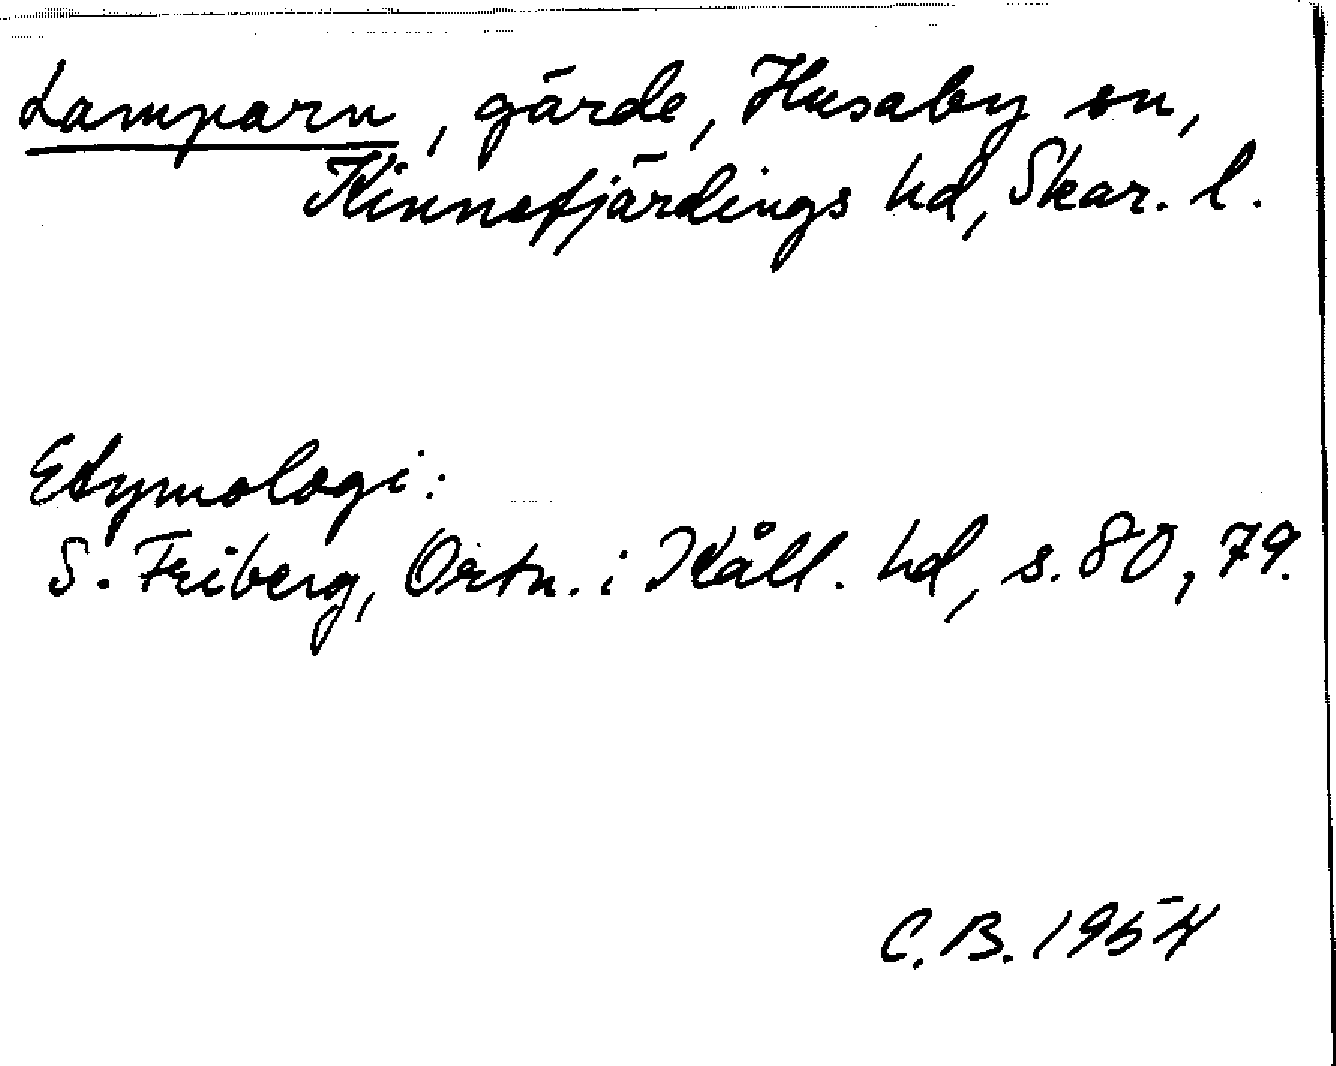 Lamparn, gärde, Husaby sn,
Kinnefjärdings hd, Skar. l.
Etymologi:
S. Friberg, Ortn. i Kåll. hd, s. 80, 79.
C. B. 1954